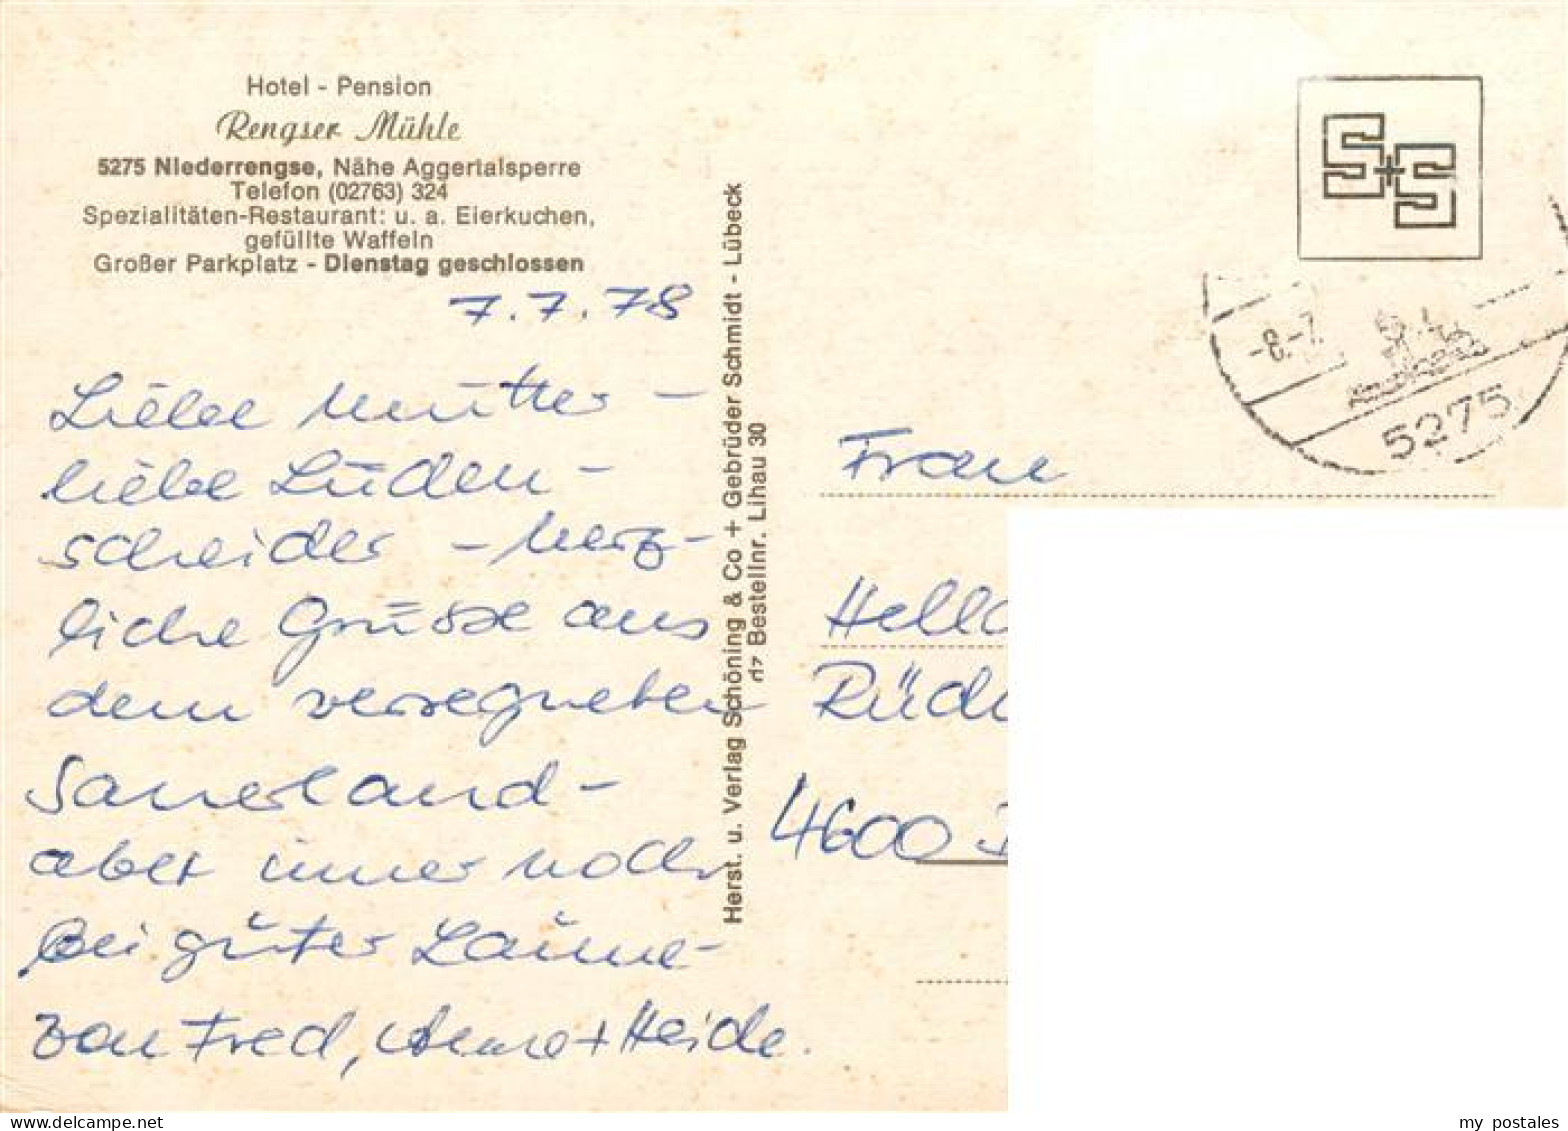 Hotel - Pension
Rengser Mühle
5275 Niederrengse, Nähe Aggertalsperre
Telefon (02763) 324
Spezialitäten-Restaurant: u. a. Eierkuchen,
gefüllte Waffeln
Großer Parkplatz - Dienstag geschlossen
7.7.78
Liebe Mutter -
liebe Lüden-
scheider - herz-
liche Grüsse aus
dem verregneten
Sauerland -
aber immer noch
bei guter Laune -
von Fred, Anne + Heide.
Herst. u. Verlag Schöning & Co + Gebrüder Schmidt - Lübeck
Bestellnr. Lihau 30
S+S
-8.-7.
5275
Frau
Hella
Rüdi
4600 D
my postales